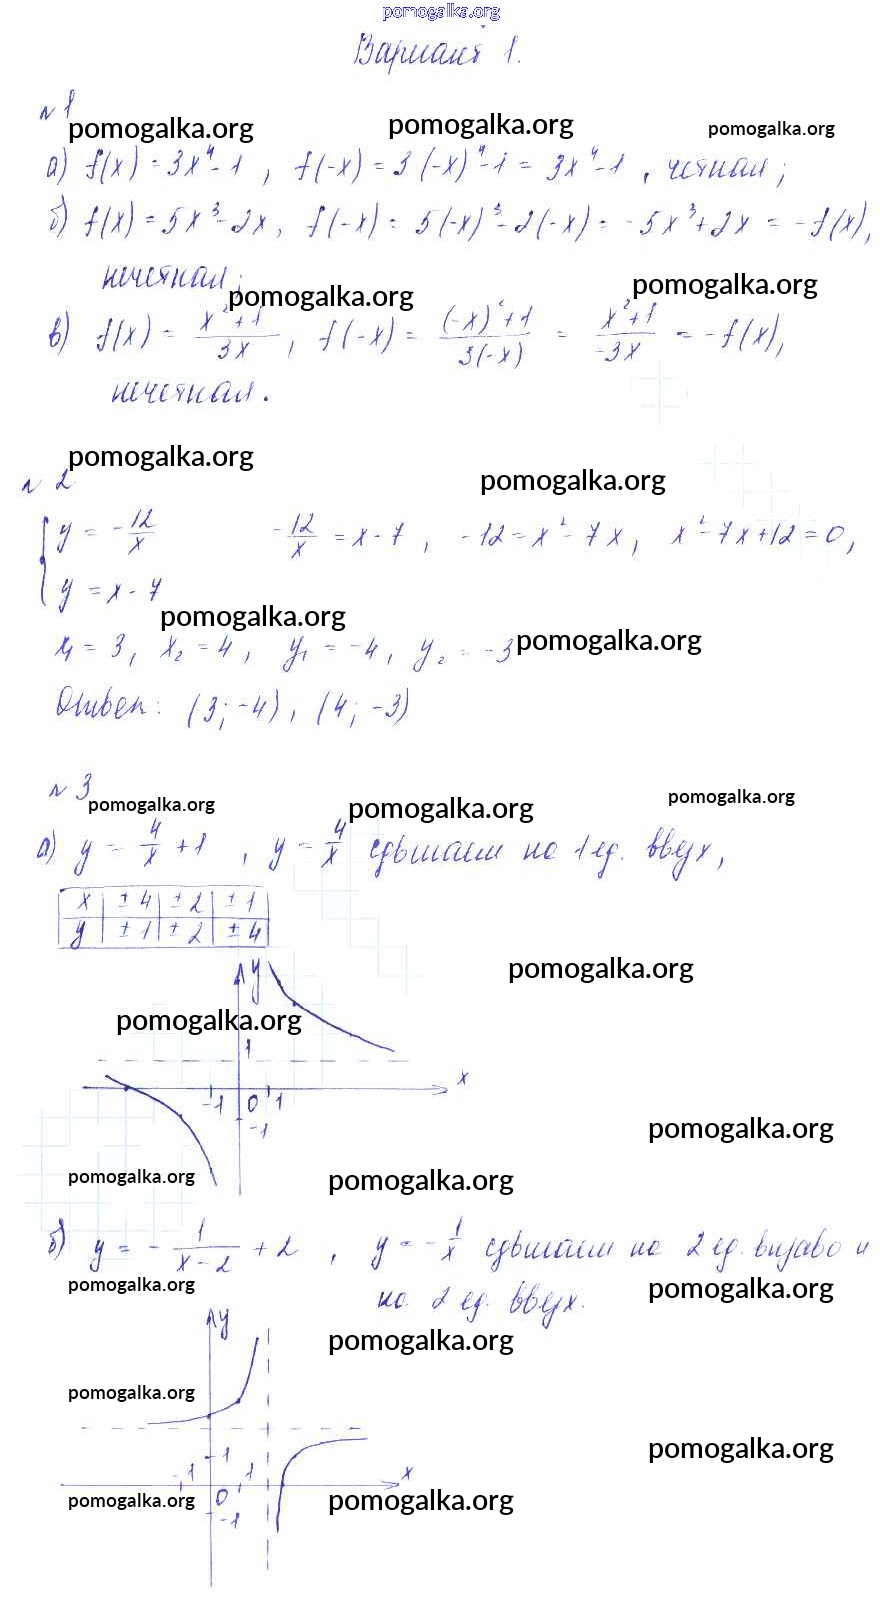 pomogalka.org
Вариант 1.
№1
pomogalka.org pomogalka.org pomogalka.org
а) f(x) = 3x⁴ - 1, f(-x) = 3(-x)⁴ - 1 = 3x⁴ - 1, четная;
б) f(x) = 5x³ - 2x, f(-x) = 5(-x)³ - 2(-x) = -5x³ + 2x = -f(x),
нечетная;
pomogalka.org pomogalka.org
в) f(x) = (x² + 1)/(3x), f(-x) = ((-x)² + 1)/(3(-x)) = (x² + 1)/(-3x) = -f(x),
нечетная.
pomogalka.org pomogalka.org
№2
{ y = -12/x -12/x = x - 7, -12 = x² - 7x, x² - 7x + 12 = 0,
y = x - 7
pomogalka.org pomogalka.org
x₁ = 3, x₂ = 4, y₁ = -4, y₂ = -3
Ответ: (3; -4), (4; -3)
№3
pomogalka.org pomogalka.org pomogalka.org
а) y = 4/x + 1, y = 4/x сдвигаем на 1 ед. вверх,
x ±4 ±2 ±1
y ±1 ±2 ±4
pomogalka.org
y
pomogalka.org
1
x
-1 0 1
-1
pomogalka.org
pomogalka.org pomogalka.org
б) y = -1/(x-2) + 2, y = -1/x сдвигаем на 2 ед. вправо и
на 2 ед. вверх.
pomogalka.org pomogalka.org
y
pomogalka.org
pomogalka.org
pomogalka.org
1
-1 1 x
0
pomogalka.org pomogalka.org
-1